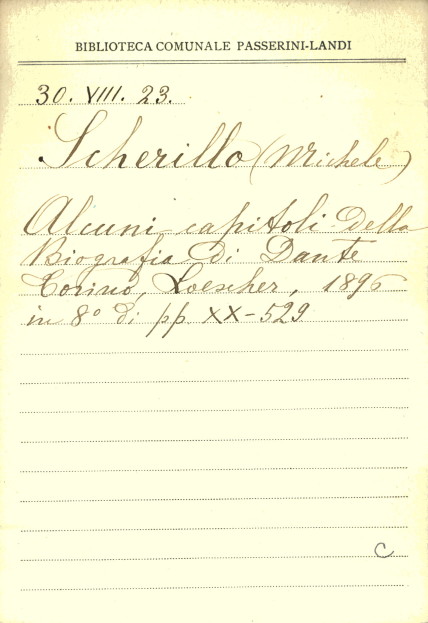 BIBLIOTECA COMUNALE PASSERINI-LANDI
30. VIII. 23.
Scherillo (Michele)
Alcuni capitoli della
Biografia di Dante
Torino, Loescher, 1896
in 8° di pp. XX-529
C